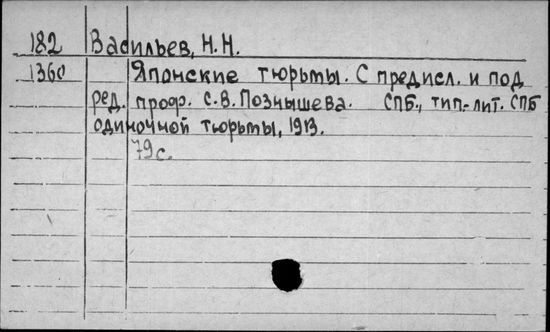 182 Васильев, Н.Н.
1360 Японские тюрьмы. С предисл. и под
ред. проф. С.В. Познышева. СПБ., тип.-лит. СПБ
одиночной тюрьмы, 1913.
79 с.